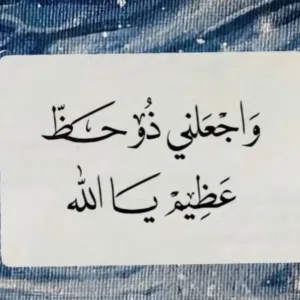 وَاجْعَلني ذُو حَظّ
عَظِيمْ يَا الله